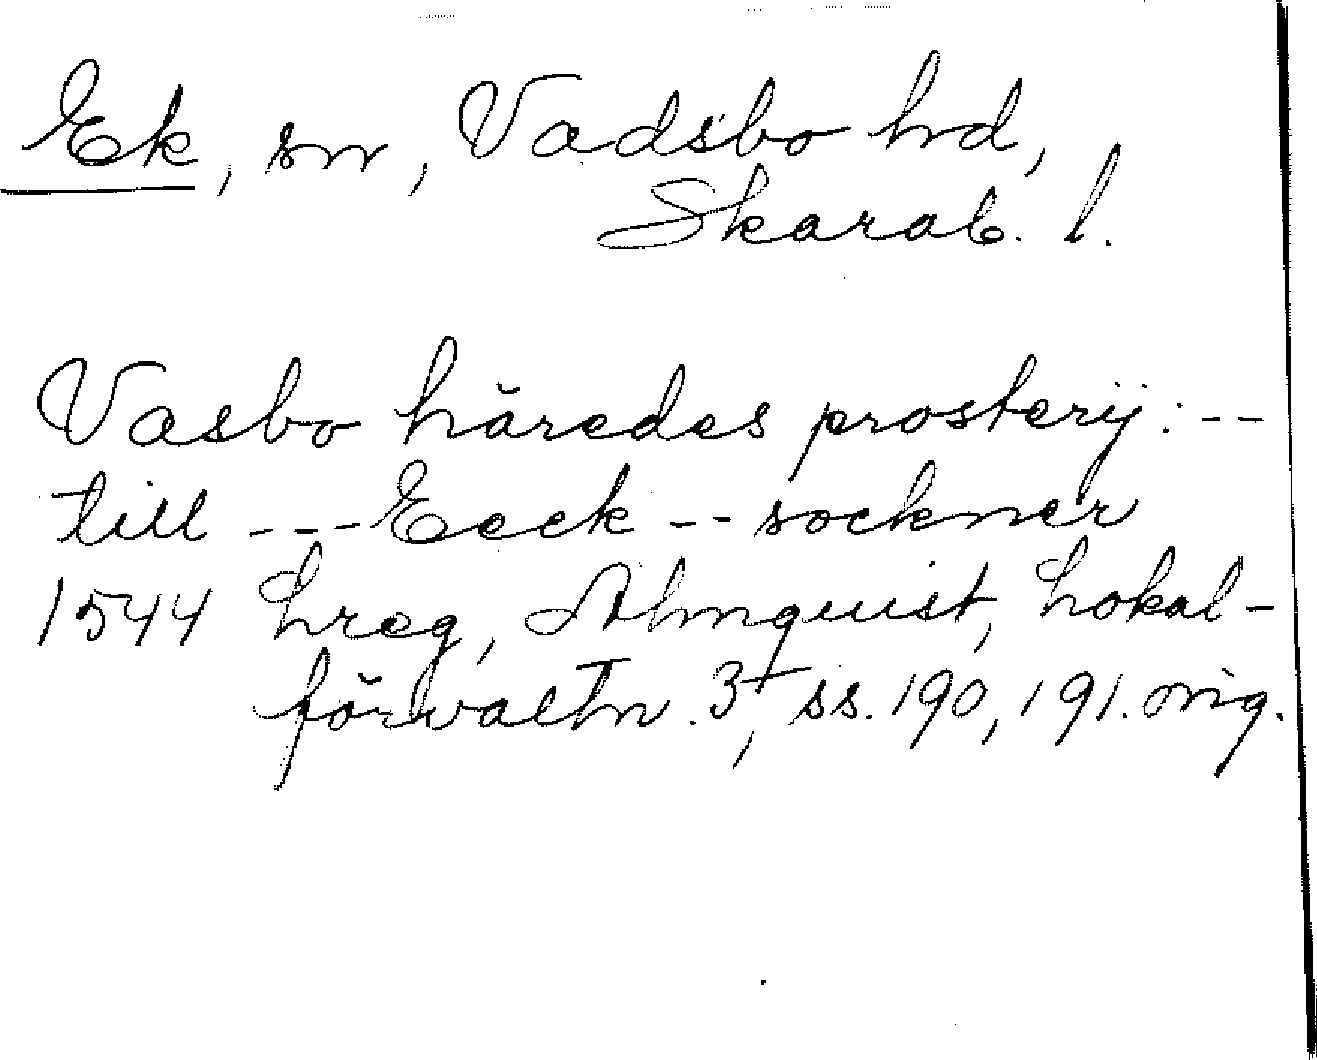 Ek, sn, Vadsbo hd,
Skarab. l.
Vasbo häredes prosterij: --
till --- Eeck -- sockner
1544 hreg, Almquist, Lokal-
förvaltn. 3, ss. 190, 191. orig.